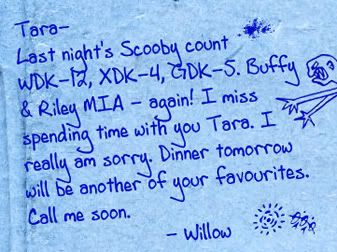 Tara-
Last night's Scooby count
WDK-12, XDK-4, GDK-5. Buffy
& Riley MIA - again! I miss
spending time with you Tara. I
really am sorry. Dinner tomorrow
will be another of your favourites.
Call me soon.
- Willow